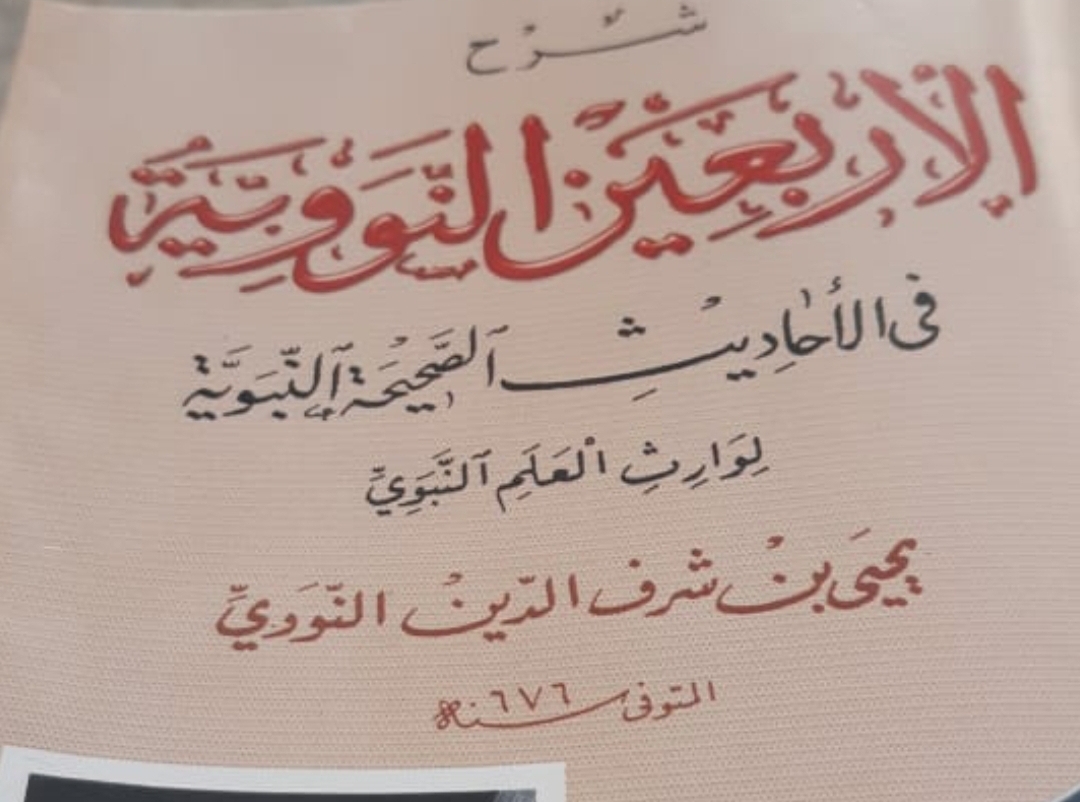 شرح
الأربعين النووية
فى الأحاديث الصحيحة النبوية
لوارث العلم النبوي
يحيى بن شرف الدين النووي
المتوفى سنة ٦٧٦ هـ